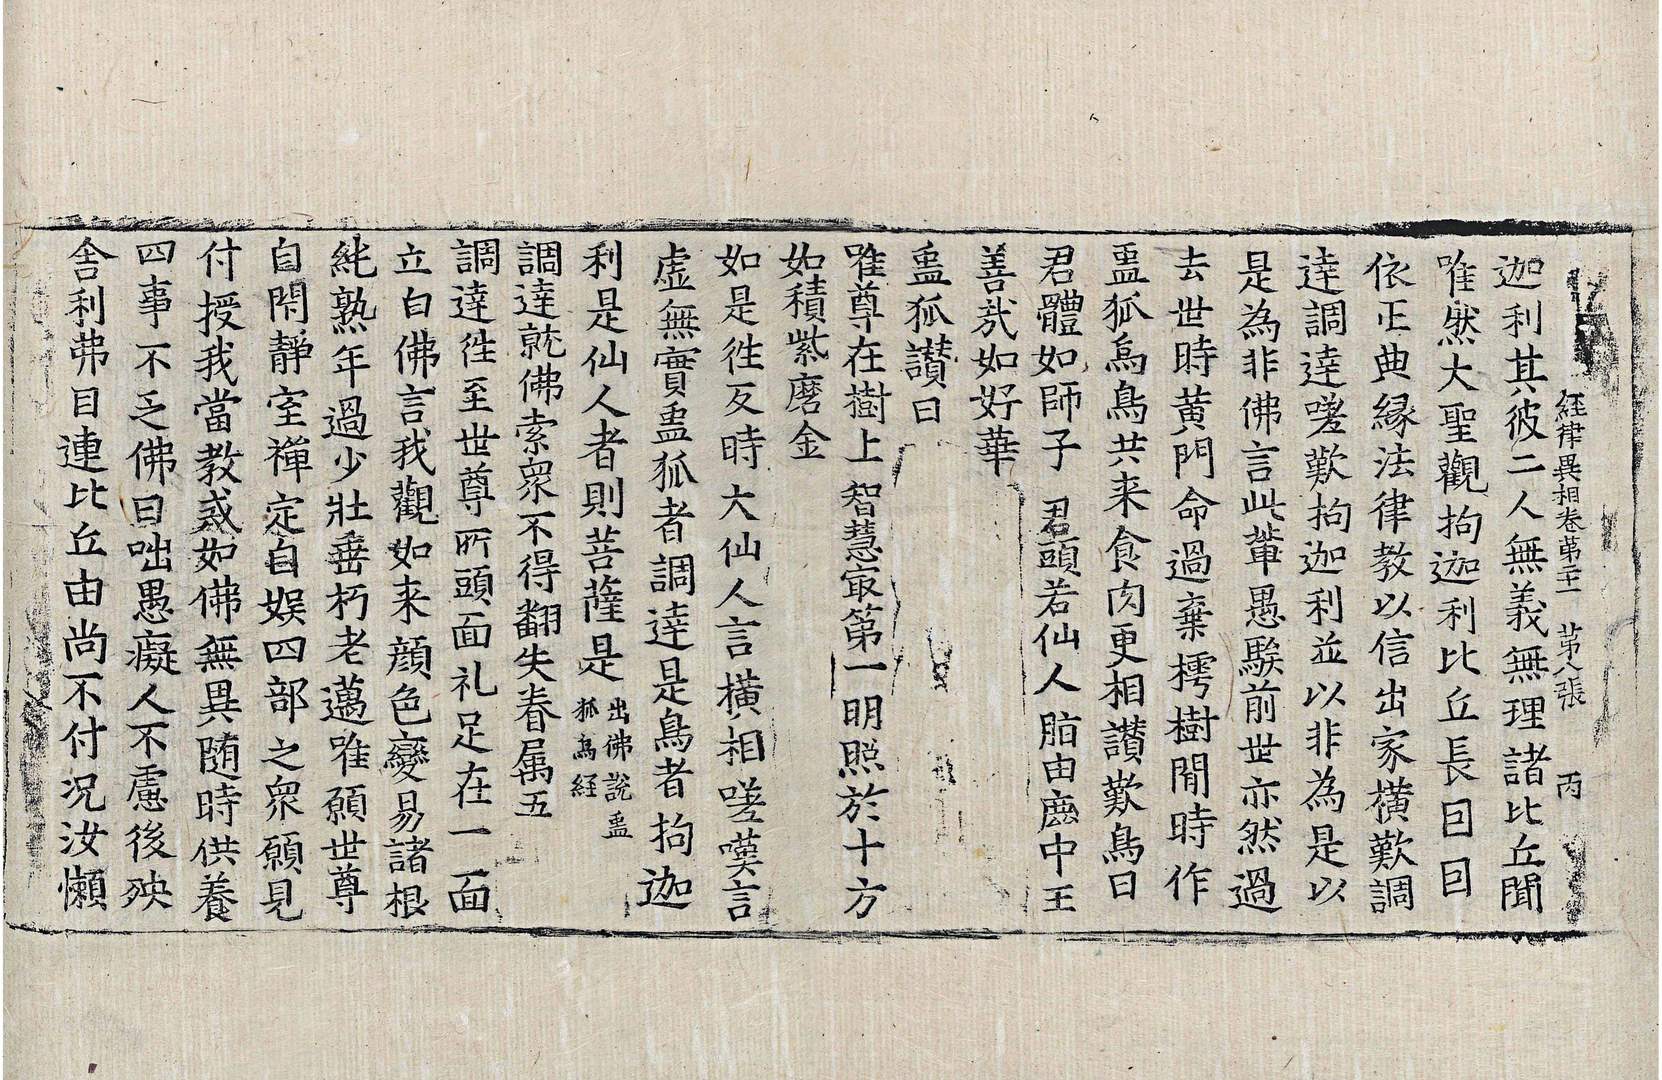 經律異相卷第二十一　第八張　丙
迦利其彼二人無義無理諸比丘聞
唯然大聖觀拘迦利比丘長囙囙
依正典緣法律教以信出家橫歎調
達調達嗟歎拘迦利並以非為是以
是為非佛言此輩愚騃前世亦然過
去世時黃門命過棄樗樹間時作
蠱狐烏鳥共来食肉更相讃歎鳥曰
君體如師子　君頭若仙人　脂由麈中王
善㢤如好華
蠱狐讃曰
唯尊在樹上　智慧㝡第一　明照於十方
如積紫磨金
如是徃反時大仙人言橫相嗟嘆言
虛無實蠱狐者調達是鳥者拘迦
利是仙人者則菩薩是出佛說蠱狐烏経
調達就佛索衆不得翻失眷属五
調達徃至世尊所頭面礼足在一面
立白佛言我觀如来顔色變易諸根
純熟年過少壯垂朽老邁唯願世尊
自閑靜室禪定自娛四部之衆願見
付授我當教戒如佛無異随時供養
四事不乏佛曰咄愚癡人不慮後殃
舍利弗目連比丘由尚不付况汝懶